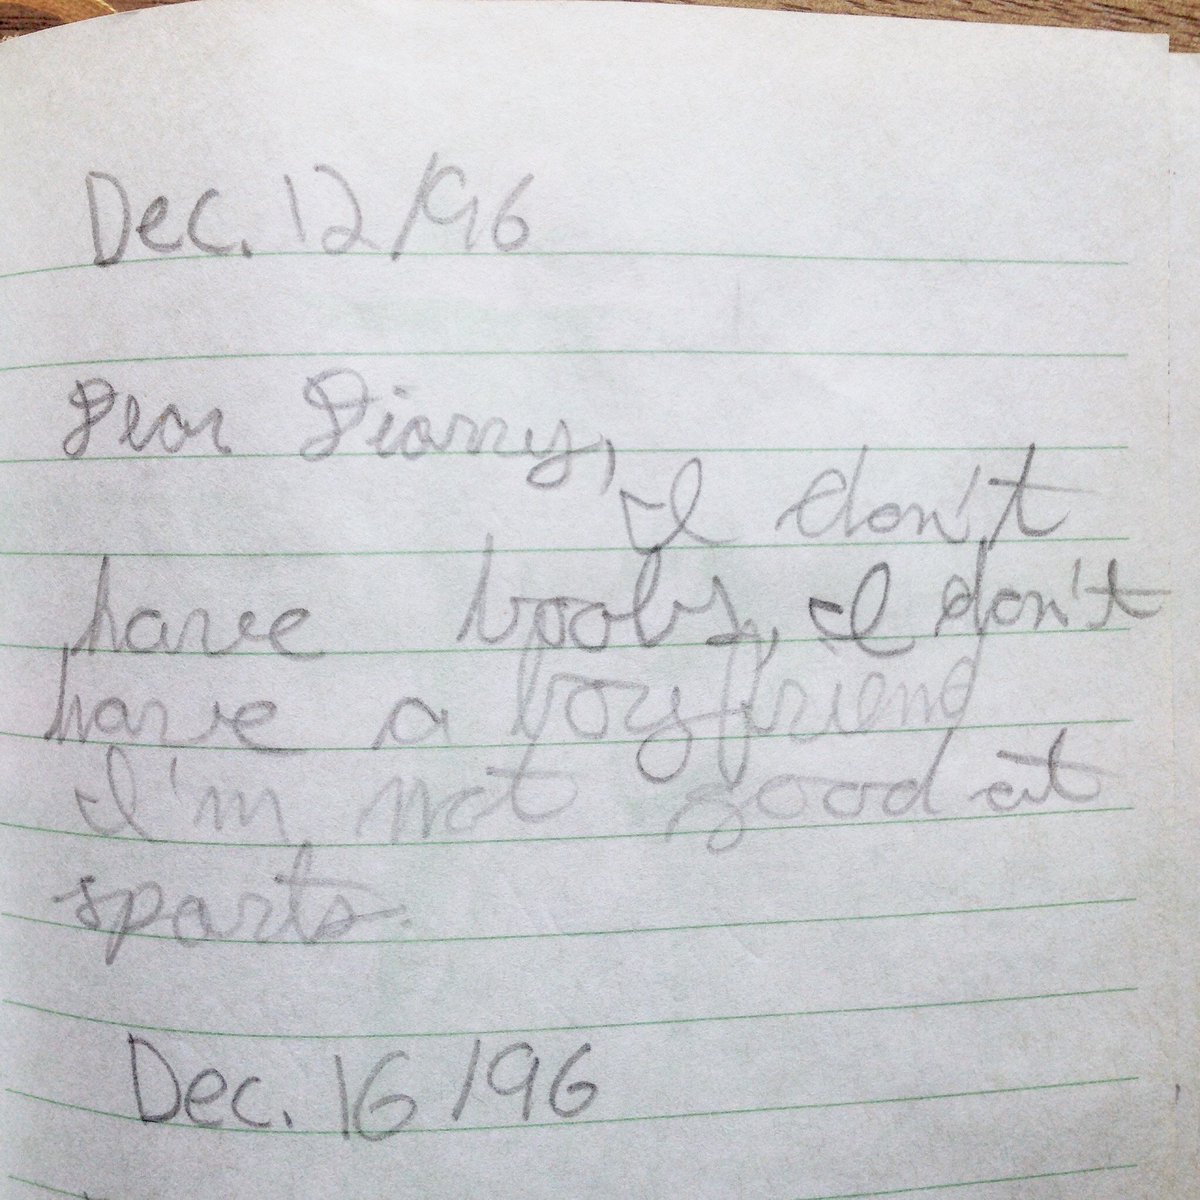 Dec. 12/96
Dear Diarry,
I don't
have boobs, I don't
have a boyfriend
I'm not good at
sparts.
Dec. 16/96